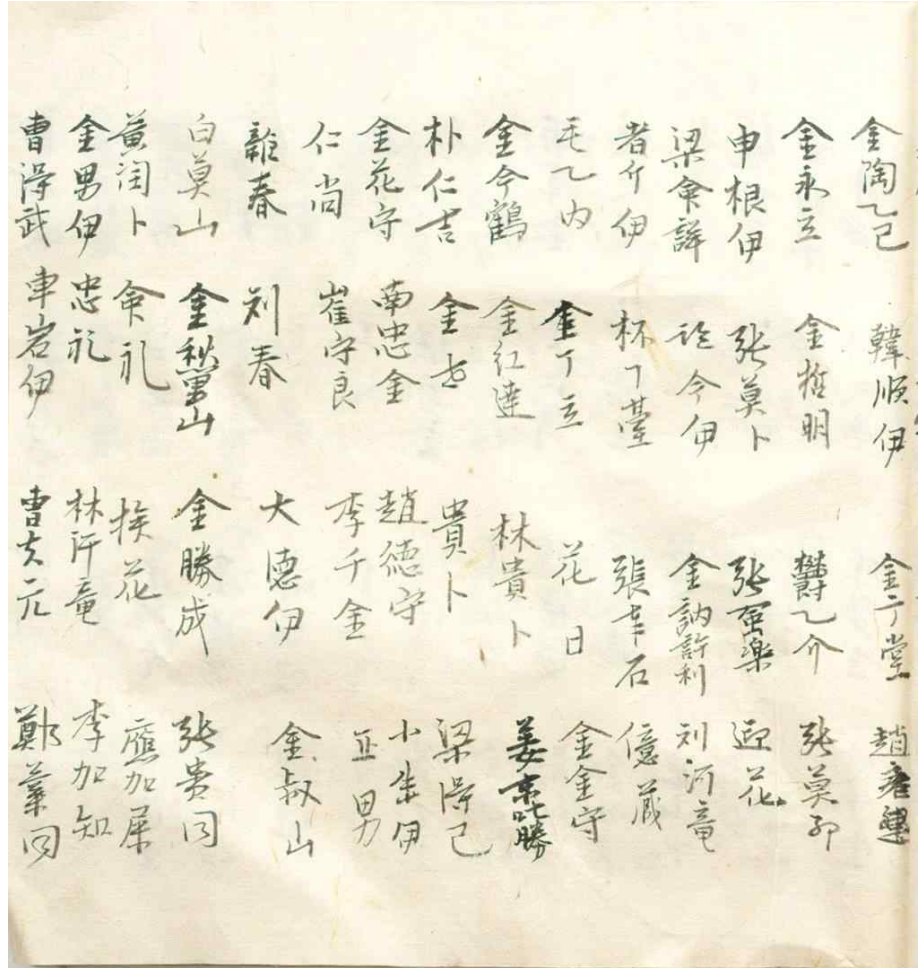 金陶乙已 韓順伊 金丁堂 趙
金永立 金哲明 欝乙介 張莫卯
申根伊 張莫卜 張 樂 迎花
梁 詳 訖今伊 金訥許利 刘河竜
者斤伊 杯丁 張 石 億蔵
毛乙內 金丁立 花日 金金守
金今鶴 金红達 林貴卜 姜 勝
朴仁吉 金 貴卜 梁得已
金花守 南忠金 趙德守 小朱伊
仁尚 崔守良 李千金 正男
龍春 刘春 大德伊 金叔山
白莫山 金秋 山 金勝成 張贵同
黄 卜 命礼 花 應加屎
金男伊 忠礼 林 竜 李加知
曹得武 車岩伊 曹 元 鄭 同